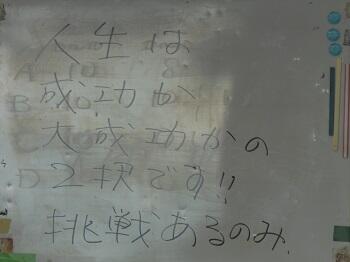 人生は
成功か
大成功かの
2択です!!
挑戦あるのみ